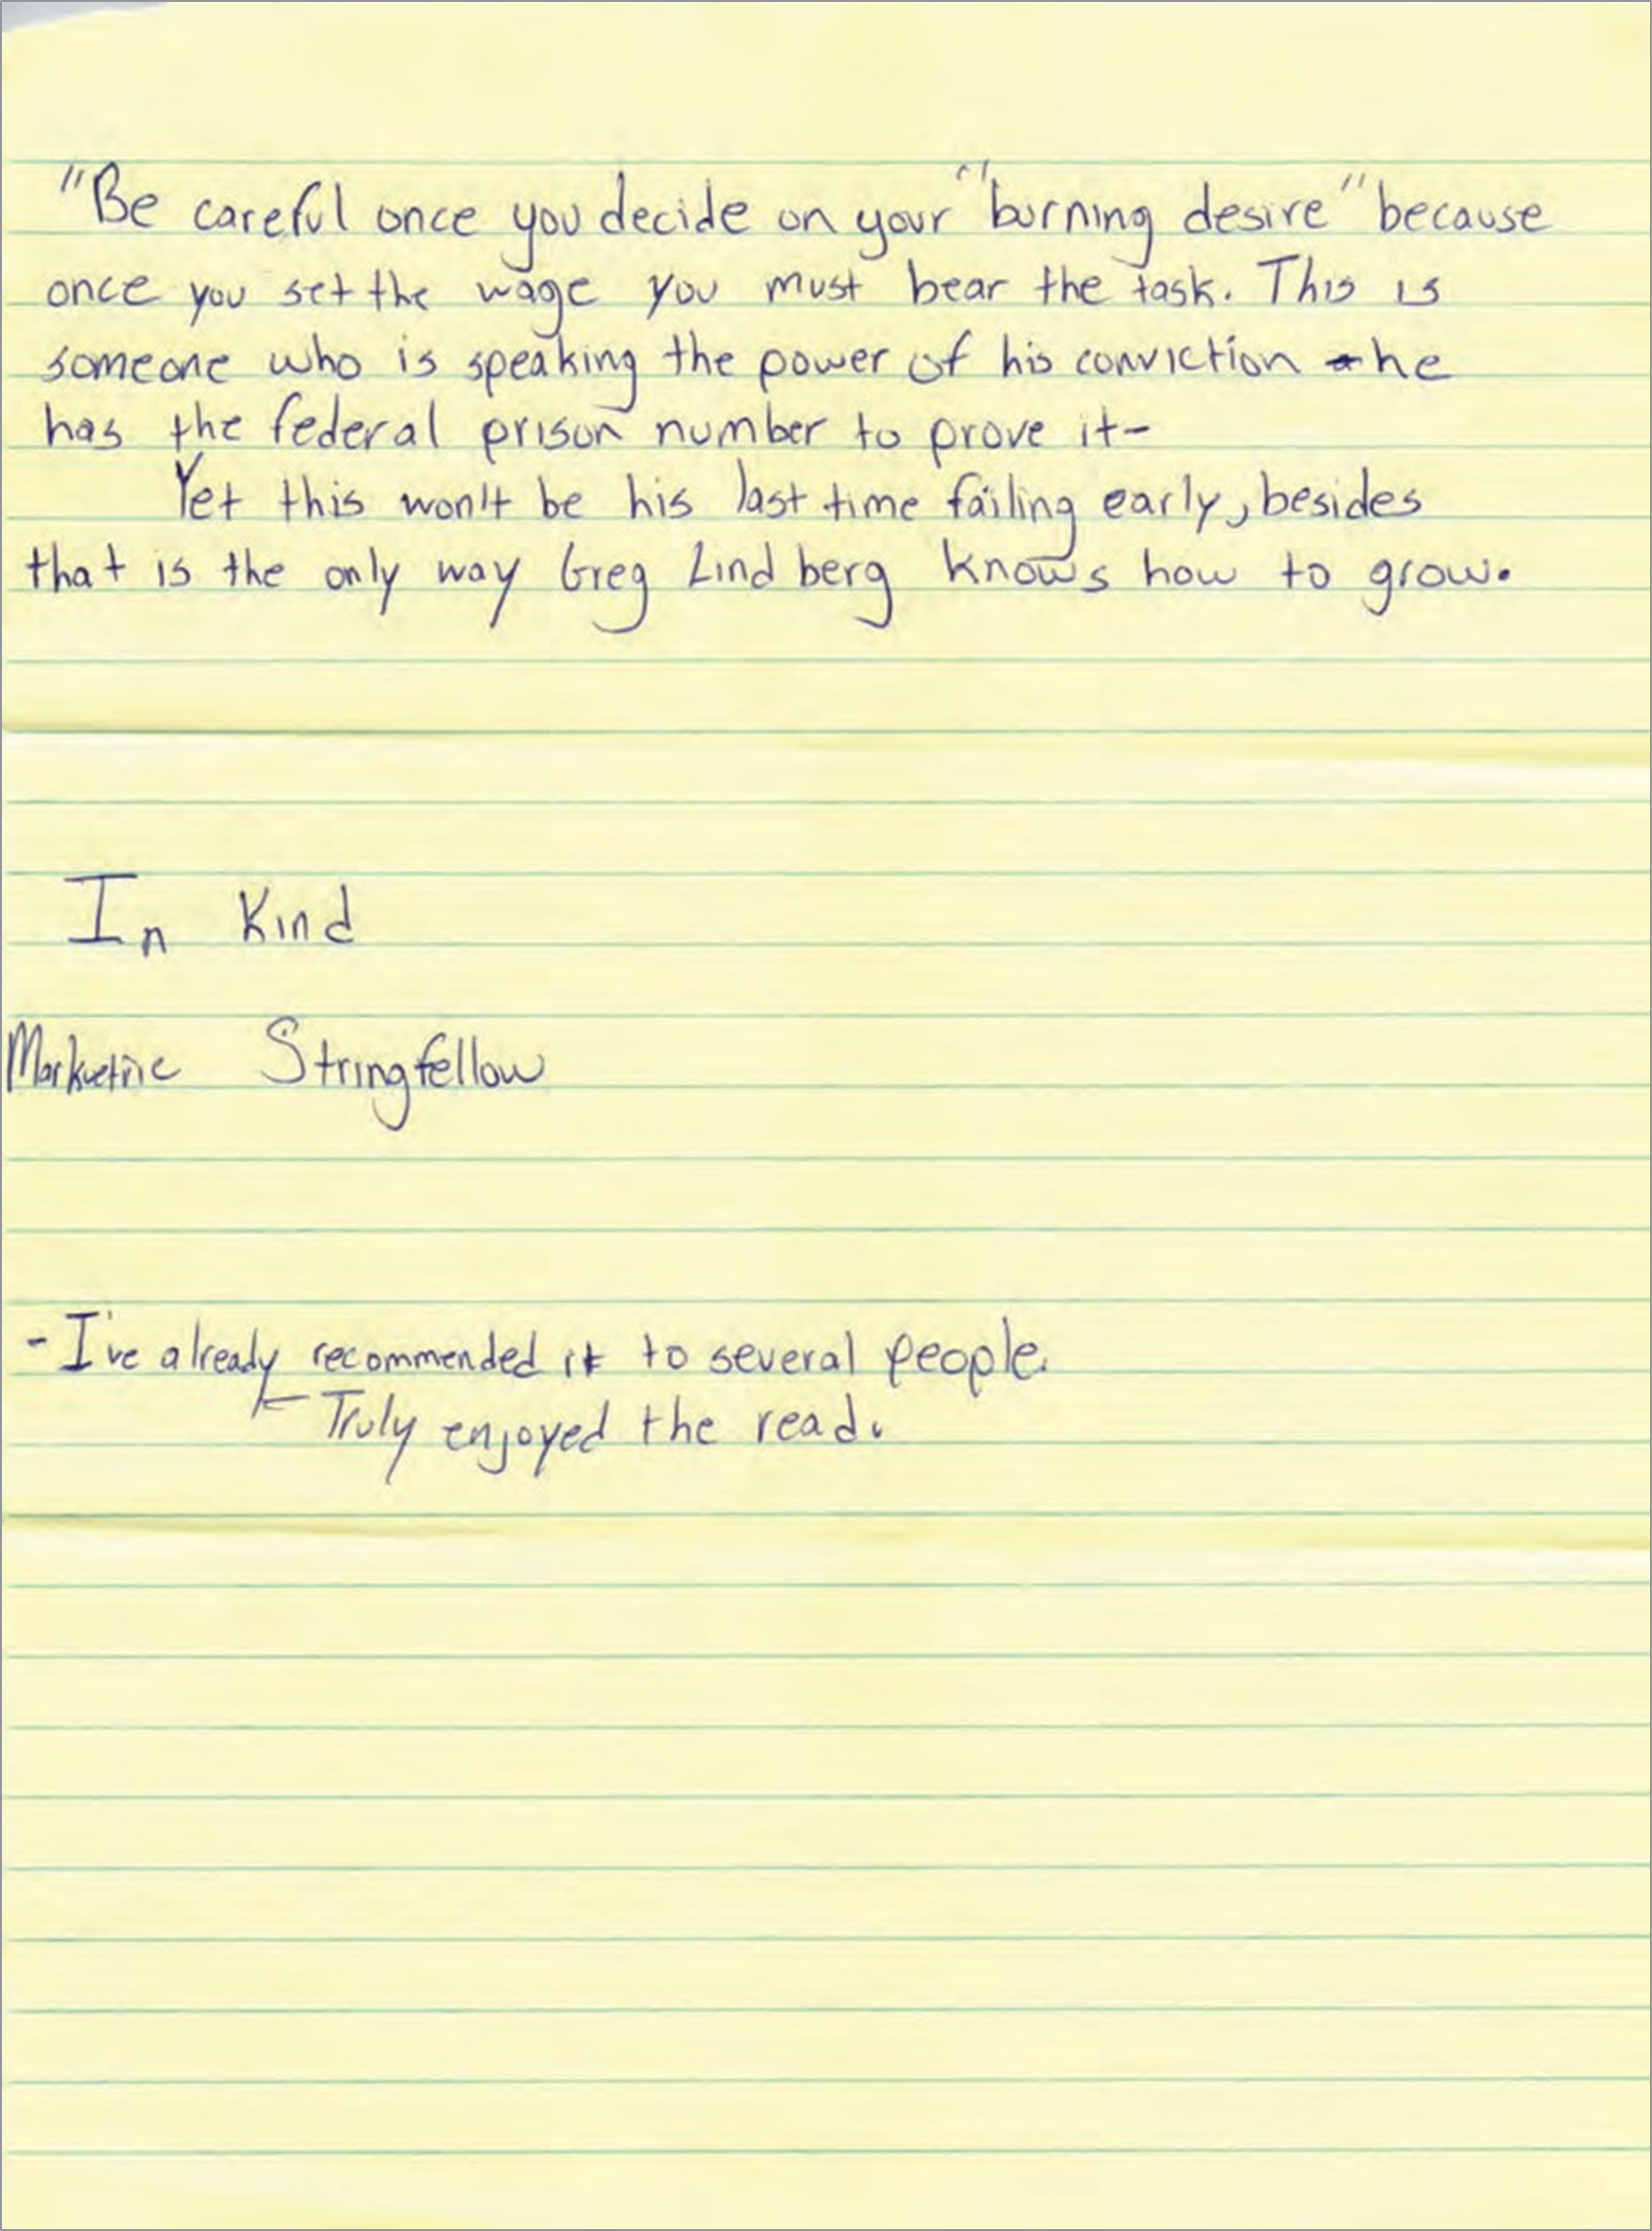 "Be careful once you decide on your "burning desire" because
once you set the wage you must bear the task. This is
someone who is speaking the power of his conviction - he
has the federal prison number to prove it-
Yet this won't be his last time failing early, besides
that is the only way Greg Lindberg knows how to grow.
In Kind
Markvetric Stringfellow
- I've already recommended it to several people.
Truly enjoyed the read.